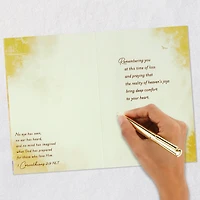 No eye has seen,
no ear has heard,
and no mind has imagined
what God has prepared
for those who love Him.
1 Corinthians 2:9 NLT
Remembering you
at this time of loss
and praying that
the reality of heaven's joys
bring deep comfort
to your heart.